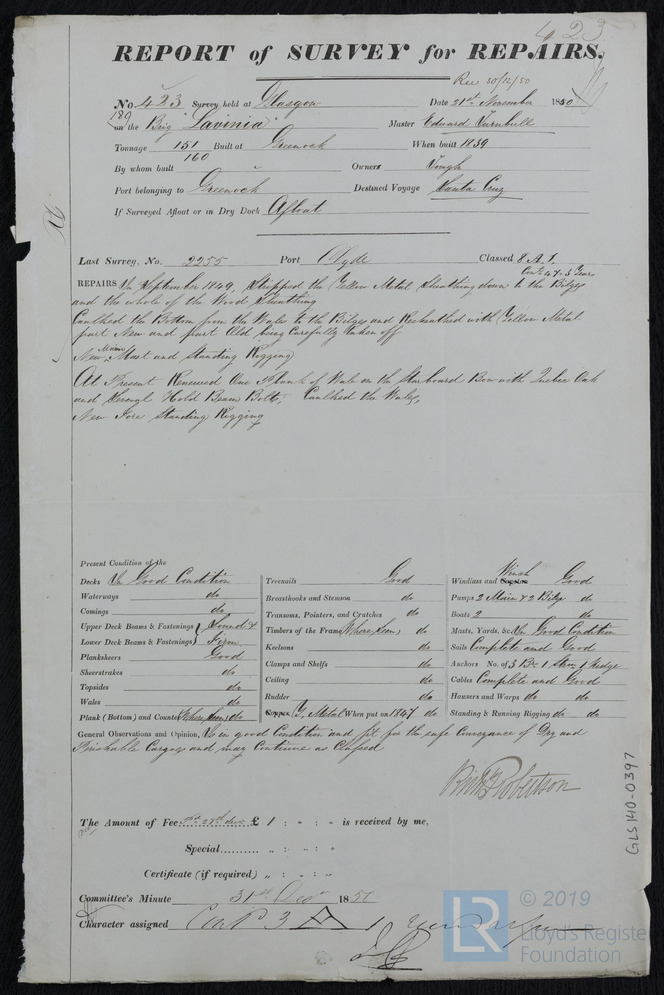 423
REPORT of SURVEY for REPAIRS.
Rec 30/12/50
No. 423 Survey held at Glasgow Date 21st November 1850
189
on the Brig "Lavinia" Master Edward Turnbull
Tonnage 151 Built at Greenock When built 1839
160
By whom built " Owners
Port belonging to Greenock Destined Voyage Santa Cruz
If Surveyed Afloat or in Dry Dock Afloat
Last Survey, No. 2255 Port Clyde Classed 8 A.1.
Cont. 47-3 Years
REPAIRS In September 1849, Stripped the Yellow Metal Sheathing down to the Bilges
and the whole of the Wood Sheathing
Caulked the Bottom from the Wales to the Bilges and Resheathed with Yellow Metal
part New and part Old being Carefully taken off
New Main Mast and Standing Rigging
At Present Renewed One Plank of Wale on the Starboard Bow with Quebec Oak
and Several Hold Beam Bolts. Caulked the Wales,
New Fore Standing Rigging
Present Condition of the
Decks In Good Condition
Waterways do
Comings do
Upper Deck Beams & Fastenings Sound &
Lower Deck Beams & Fastenings Firm
Planksheers Good
Sheerstrakes do
Topsides do
Wales do
Plank (Bottom) and Counter Where seen do
Treenails Good
Breasthooks and Stemson do
Transoms, Pointers, and Crutches do
Timbers of the Frame Where seen do
Keelsons do
Clamps and Shelfs do
Ceiling do
Rudder do
Copper Y. Metal When put on 1847 do
Windlass and Capstan Winch Good
Pumps 2 Main & 2 Bilge do
Boats 2 do
Masts, Yards, &c. In Good Condition
Sails Complete and Good
Anchors No. of 3 Br 1 Strm 1 Kedge
Cables Complete and Good
Hausers and Warps do do
Standing & Running Rigging do do
General Observations and Opinion, Is in good Condition and fit for the safe Conveyance of Dry and
Perishable Cargoes and may Continue as Classed
Robertson
The Amount of Fee £ 1 : " : " is received by me,
Special.......... " : " : "
Certificate (if required) " : " : "
Committee's Minute 31st Decr 1850
Character assigned Cont. 3
GLS140-0397
LR © 2019
Lloyd's Register
Foundation